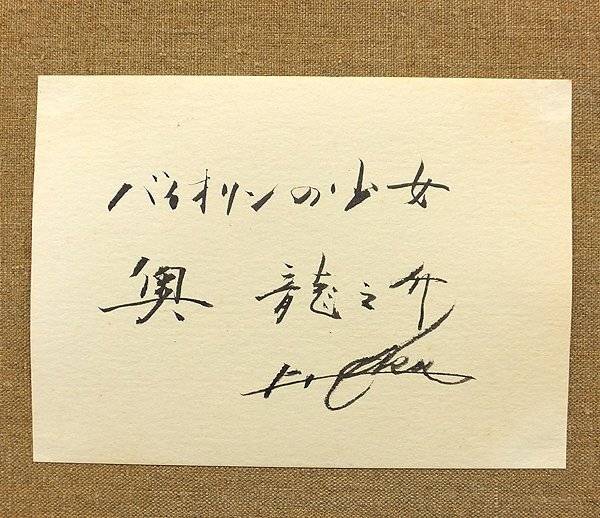 バイオリンの少女
奥 龍之介